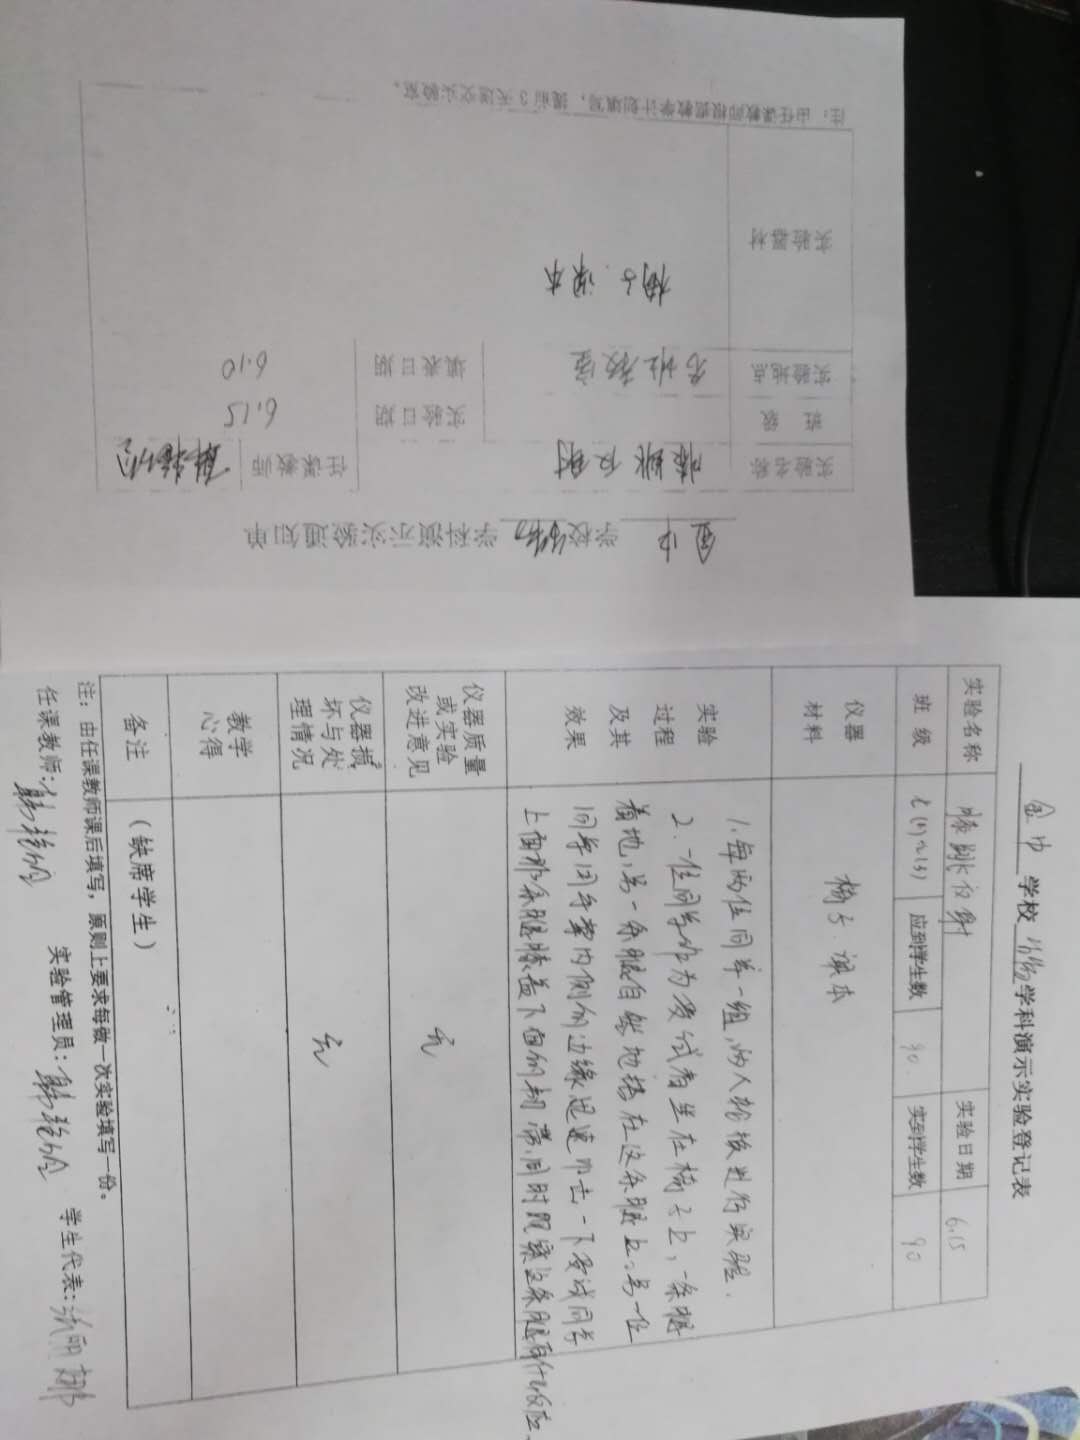 金中 学校 生物 学科演示实验通知单
实验名称 膝跳反射 任课教师
班 级 实验日期 6.15
实验地点 各班教室 填表日期 6.10
实验器材 椅子 课本
注：由任课教师根据教学计划填写，提前3天送交实验室。
金中 学校 生物 学科演示实验登记表
实验名称 膝跳反射 实验日期 6.15
班 级 七(1)七(3) 应到学生数 90 实到学生数 90
仪器材料 椅子 课本
实验过程及其效果
1.每两位同学一组,两人轮换进行实验.
2.一位同学作为受试者坐在椅子上,一条腿
着地,另一条腿自然地搭在这条腿上。另一位
同学用手掌内侧的边缘迅速叩击一下受试同学
上面那条腿膝盖下面的韧带,同时观察这条腿有什么反应.
仪器质量或实验改进意见 无
仪器损坏与处理情况 无
教学心得
备注 (缺席学生)
注：由任课教师课后填写，原则上要求每做一次实验填写一份。
任课教师: 实验管理员: 学生代表: